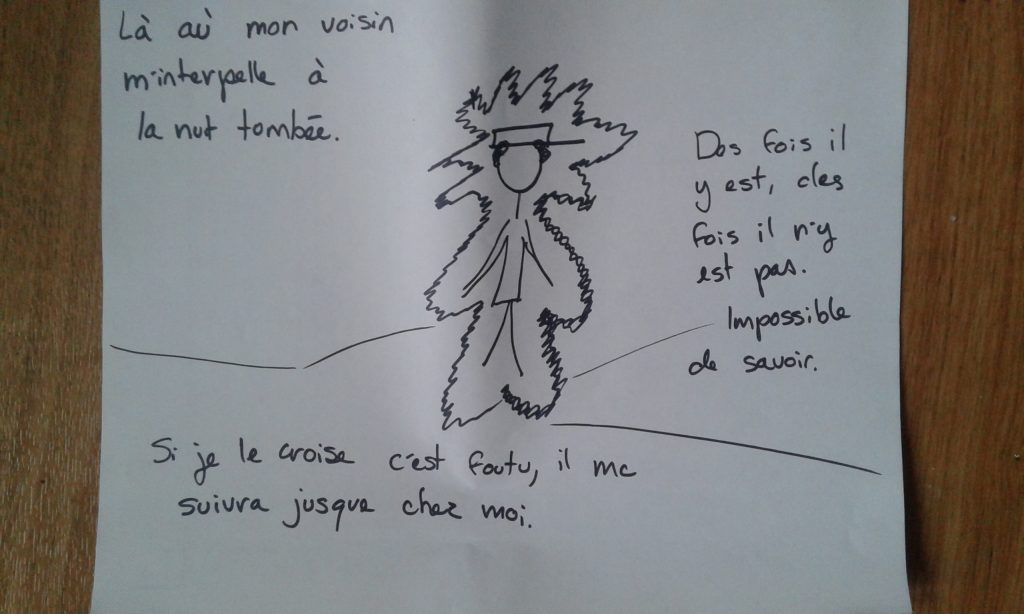 Là où mon voisin
m'interpelle à
la nuit tombée.
Des fois il
y est, des
fois il n'y
est pas.
Impossible
de savoir.
Si je le croise c'est foutu, il me
suivra jusque chez moi.